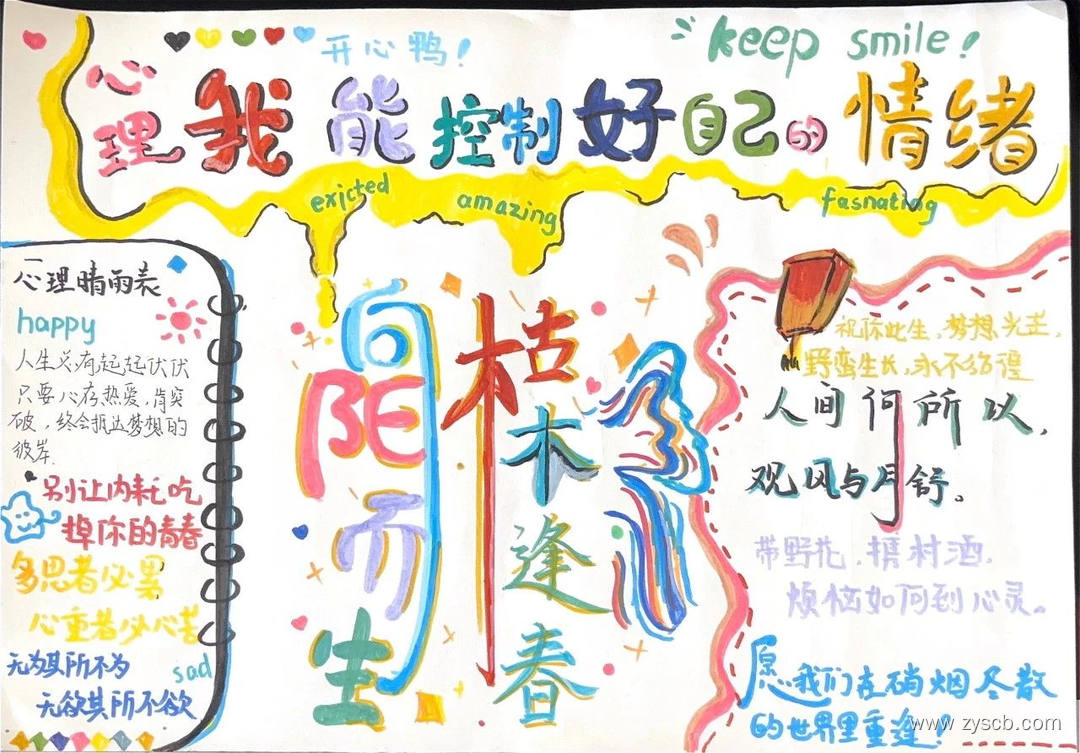 开心鸭!
keep smile!
心理 我能控制好自己的情绪
exicted
amazing
fasnating
心理晴雨表
happy
人生总有起起伏伏
只要心存热爱,肯突
破,终会抵达梦想的
彼岸.
别让内耗吃
掉你的青春
多思者必累
心重者必心苦
无为其所不为
sad
无欲其所不欲
向阳而生
枯木逢春
祝你此生,梦想光芒,
野蛮生长,永不彷徨
人间何所以,
观风与月舒。
带野花,携村酒,
烦恼如何到心灵。
愿我们在硝烟尽散
的世界里重逢!
www.zyscb.com